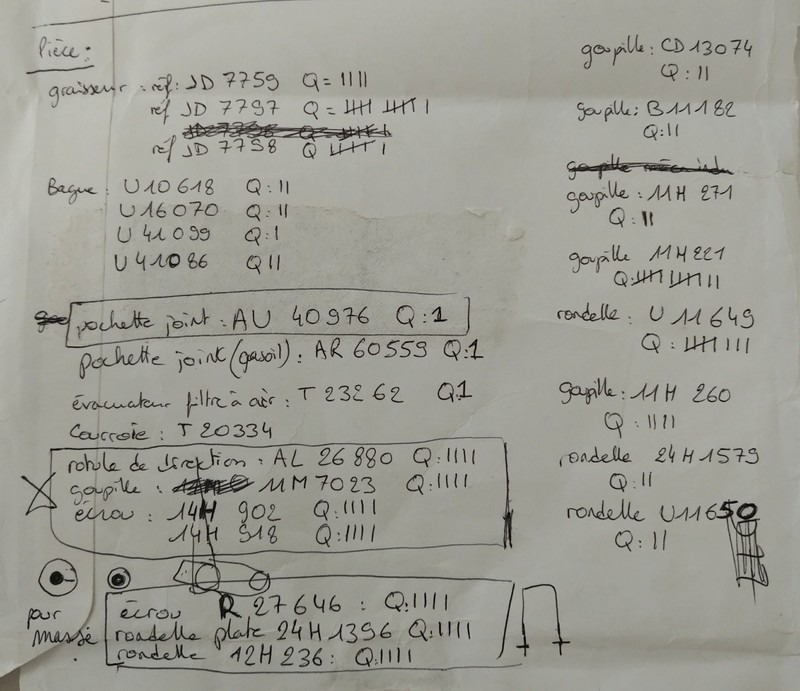 Pièce :
graisseur : réf : JD 7759 Q = IIII
réf JD 7797 Q = IIII IIII I
réf JD 7798 Q IIII I
Bague : U10618 Q : II
U16070 Q : II
U 41099 Q : I
U 41086 Q II
pochette joint : AU 40976 Q : 1
pochette joint (gasoil) : AR 60559 Q : 1
évacuateur filtre à air : T 23262 Q 1
Courroie : T 20334
rotule de direction : AL 26880 Q : IIII
goupille : 11M7023 Q : IIII
écrou : 14H 902 Q : IIII
14H 918 Q : IIII
pour massé
écrou R 27646 : Q : IIII
rondelle plate 24H1396 Q : IIII
rondelle 12H 236 : Q : IIII
goupille : CD 13074
Q : II
goupille : B11182
Q : II
goupille : 11H 271
Q : II
goupille 11H221
Q : IIII IIII II
rondelle : U 11649
Q : IIII III
goupille : 11H 260
Q : IIII
rondelle 24H1579
Q : II
rondelle U11650
Q : II